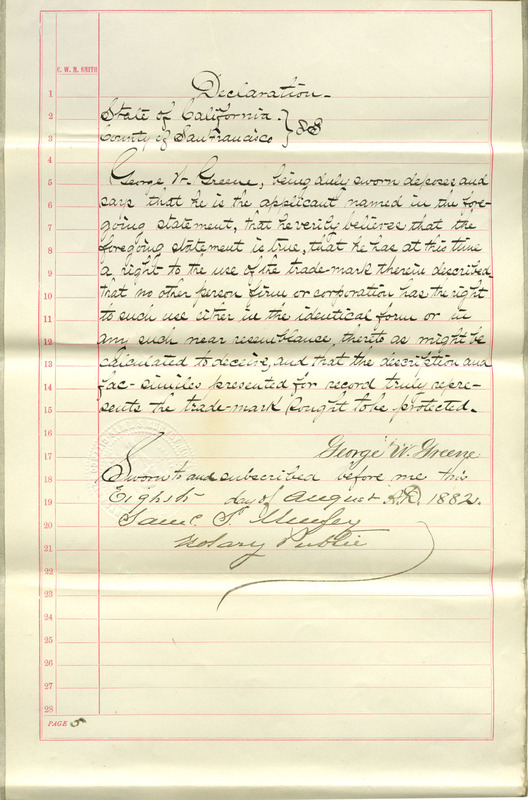 C. W. M. SMITH
Declaration.
1
2 State of California. } SS
3 County of San Francisco
4
5 George W. Greene, being duly sworn deposes and
6 says that he is the applicant named in the fore-
7 going statement, that he verily believes that the
8 foregoing statement is true, that he has at this time
9 a right to the use of the trade-mark therein described
10 that no other person firm or corporation has the right
11 to such use either in the identical form or in
12 any such near resemblance thereto as might be
13 calculated to deceive, and that the description and
14 fac-similes presented for record truly repre-
15 sents the trade-mark sought to be protected.
16
17 George W. Greene
18 Sworn to and subscribed before me this
19 Eighth day of August A.D. 1882.
20 Saml. S.
21 Notary Public
22
23
24
25
26
27
28
PAGE 5